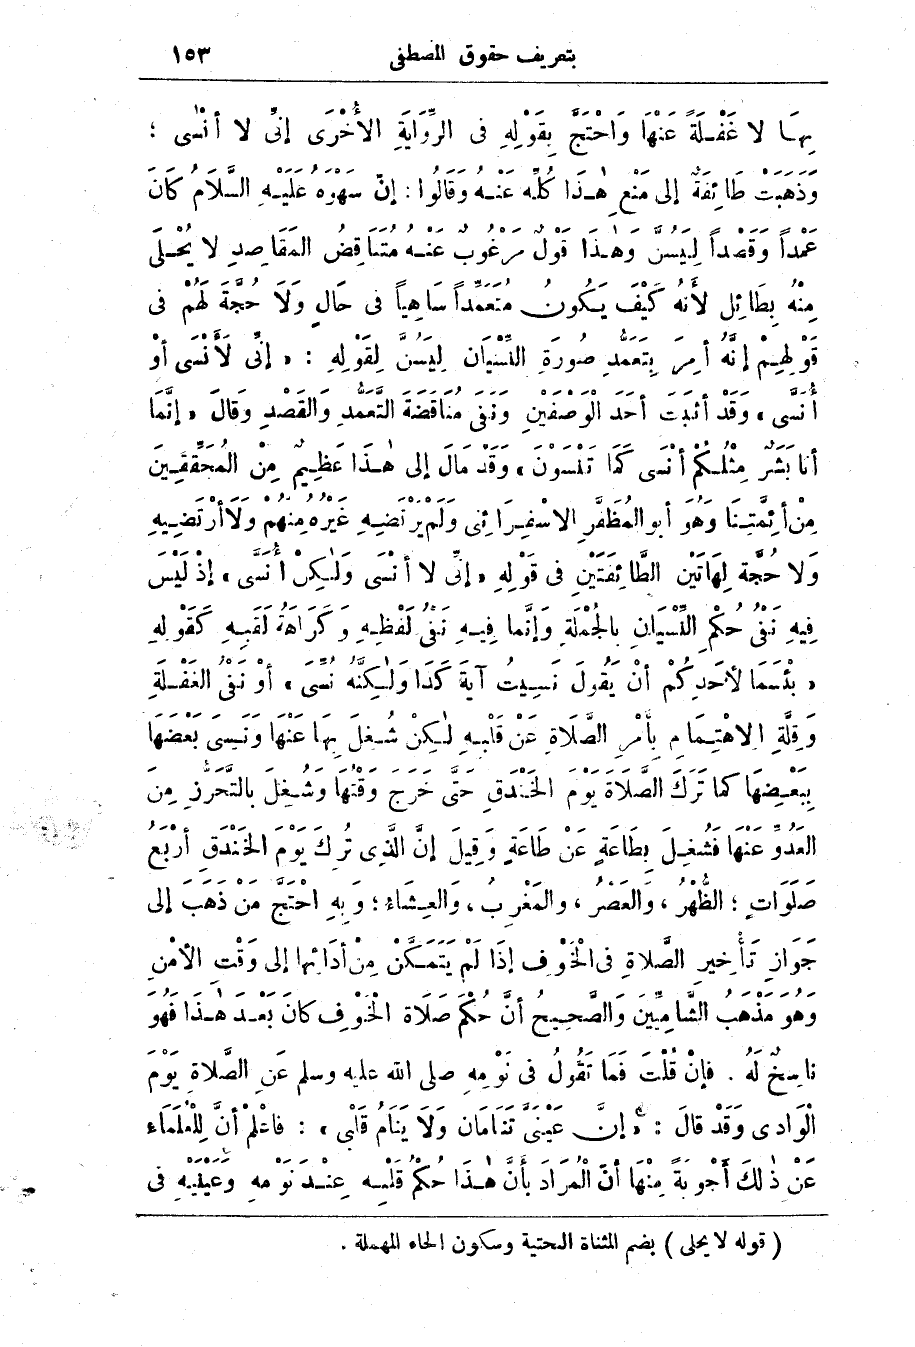 بتعريف حقوق المصطفى ١٥٣
بِهَا لا غَفْلَةً عَنْهَا وَاحْتَجَّ بِقَوْلِهِ فى الرِّوَايَةِ الأُخْرَى إنِّى لا أَنْسٰى ؛
وَذَهَبَتْ طَائِفَةٌ إلى مَنْعِ هٰذَا كُلِّه عَنْهُ وَقَالُوا : إنّ سَهْوَهُ عَلَيْهِ السَّلَامُ كَانَ
عَمْداً وَقَصْداً لِيَسُنَّ وَهٰذَا قَوْلٌ مَرْغُوبٌ عَنْهُ مُتَنَاقِضُ المَقَاصِدِ لا يُحْلَى
مِنْهُ بِطَائِلٍ لأَنَّهُ كَيْفَ يَكُونُ مُتَعَمِّداً سَاهِياً فى حَالٍ وَلَا حُجَّةَ لَهُمْ فى
قَوْلِهِمْ إنَّهُ أُمِرَ بِتَعَمُّدِ صُورَةِ النِّسْيَانِ لِيَسُنَّ لِقَوْلِهِ : « إنِّى لَأَنْسَى أَوْ
أُنَسَّى » وَقَدْ أَثْبَتَ أَحَدَ الْوَصْفَيْنِ وَنَفَى مُنَاقَضَةَ التَّعَمُّدِ وَالْقَصْدِ وَقَالَ « إنَّمَا
أَنَا بَشَرٌ مِثْلُكُمْ أَنْسَى كَمَا تَنْسَوْنَ » وَقَدْ مَالَ إلى هٰذَا عَظِيمٌ مِنْ المُحَقِّقِينَ
مِنْ أَئِمَّتِنَا وَهُوَ أبو المُظَفَّرِ الاسْفِرَائِنِى وَلَمْ يَرْتَضِهِ غَيْرُهُ مِنْهُمْ وَلا أَرْتَضِيهِ
وَلا حُجَّةَ لِهَاتَيْنِ الطَّائِفَتَيْنِ فى قَوْلِهِ « إنِّى لا أَنْسَى وَلٰكِنْ أُنَسَّى » إذْ لَيْسَ
فِيهِ نَفْىُ حُكْمِ النِّسْيَانِ بالجُمْلَةِ وَإنَّما فِيهِ نَفْىُ لَفْظِهِ وَكَرَاهَةُ لَقَبِهِ كَقَوْلِهِ
« بِئْسَمَا لأَحَدِكُمْ أَنْ يَقُولَ نَسِيتُ آيَةَ كَذَا وَلٰكِنَّهُ نُسِّىَ » أَوْ نَفْىُ الغَفْلَةِ
وَقِلَّةِ الِاهْتِمَامِ بِأَمْرِ الصَّلَاةِ عَنْ قَلْبِهِ لٰكِنْ شُغِلَ بِهَا عَنْهَا وَنَسِىَ بَعْضَهَا
بِبَعْضِهَا كما تَرَكَ الصَّلَاةَ يَوْمَ الخَنْدَقِ حَتَّى خَرَجَ وَقْتُهَا وَشُغِلَ بالتَّحَرُّزِ مِنَ
العَدُوِّ عَنْهَا فَشُغِلَ بِطَاعَةٍ عَنْ طَاعَةٍ وَقِيلَ إنَّ الَّذِى تُرِكَ يَوْمَ الخَنْدَقِ أَرْبَعُ
صَلَوَاتٍ ؛ الظُّهْرُ ، وَالعَصْرُ ، والمَغْرِبُ ، وَالعِشَاءُ ؛ وَبِهِ احْتَجَّ مَنْ ذَهَبَ إلى
جَوَازِ تَأْخِيرِ الصَّلَاةِ فى الْخَوْفِ إذَا لَمْ يَتَمَكَّنْ مِنْ أَدَائِهَا إلى وَقْتِ الأَمْنِ
وَهُوَ مَذْهَبُ الشَّامِيِّينَ وَالصَّحِيحُ أَنَّ حُكْمَ صَلَاةِ الْخَوْفِ كانَ بَعْدَ هٰذَا فَهُوَ
نَاسِخٌ لَهُ . فَإنْ قُلْتَ فَمَا تَقُولُ فى نَوْمِهِ صلى الله عليه وسلم عَنِ الصَّلَاةِ يَوْمَ
الْوَادِى وَقَدْ قَالَ : « إنَّ عَيْنَىَّ تَنَامَانِ وَلَا يَنَامُ قَلْبِى » : فَاعْلَمْ أَنَّ لِلْعُلَمَاءِ
عَنْ ذٰلِكَ أَجْوِبَةً مِنْهَا أَنَّ الْمُرَادَ بأَنَّ هٰذَا حُكْمُ قَلْبِهِ عِنْدَ نَوْمِهِ وَعَيْنَيْهِ فى
( قوله لا يحلى ) بضم المثناة التحتية وسكون الحاء المهملة .